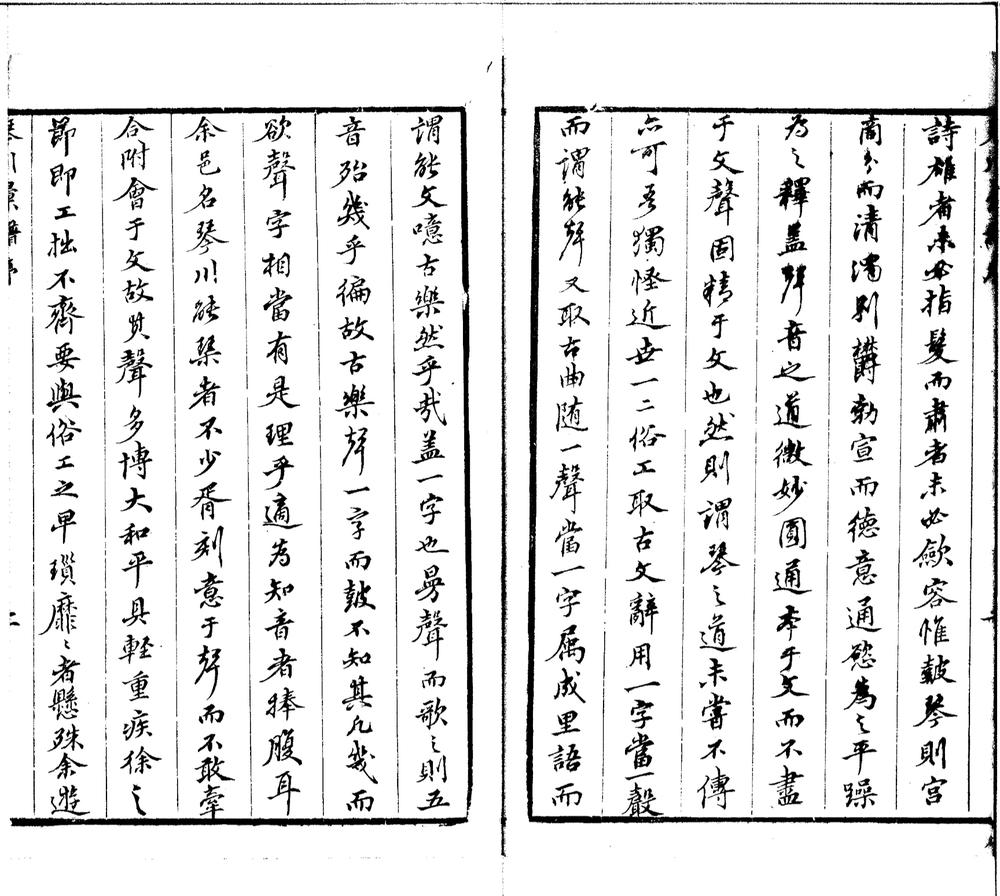 詩雄者未必指髮而肅者未必歛容惟鼓琴則宮
商分而清濁別欝勃宣而德意通慾為之平躁
為之釋蓋聲音之道微妙圓通本于文而不盡
于文聲固精于文也然則謂琴之道未嘗不傳
亦可吾獨怪近世一二俗工取古文辭用一字當一聲
而謂能聲又取古曲随一聲當一字属成里語而
謂能文噫古樂然乎哉盖一字也曼聲而歌之則五
音殆幾乎徧故古樂聲一字而鼓不知其凡幾而
欲聲字相當有是理乎適為知音者捧腹耳
余邑名琴川能琴者不少胥刻意于聲而不敢牽
合附會于文故其聲多博大和平具輕重疾徐之
節即工拙不齊要與俗工之卑瑣靡之者懸殊余遊